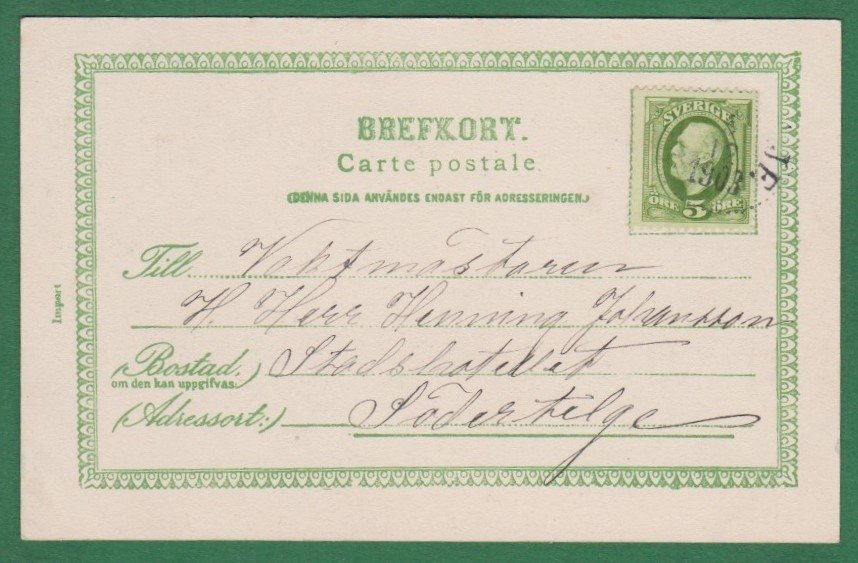 BREFKORT.
Carte postale.
(DENNA SIDA ANVÄNDES ENDAST FÖR ADRESSERINGEN.)
SVERIGE
1903
ÖRE 5 ÖRE
Till Vaktmästaren
H. Herr Henning Johansson
(Bostad,
om den kan uppgifvas.) Stadshotellet
(Adressort:) Södertelge
Import